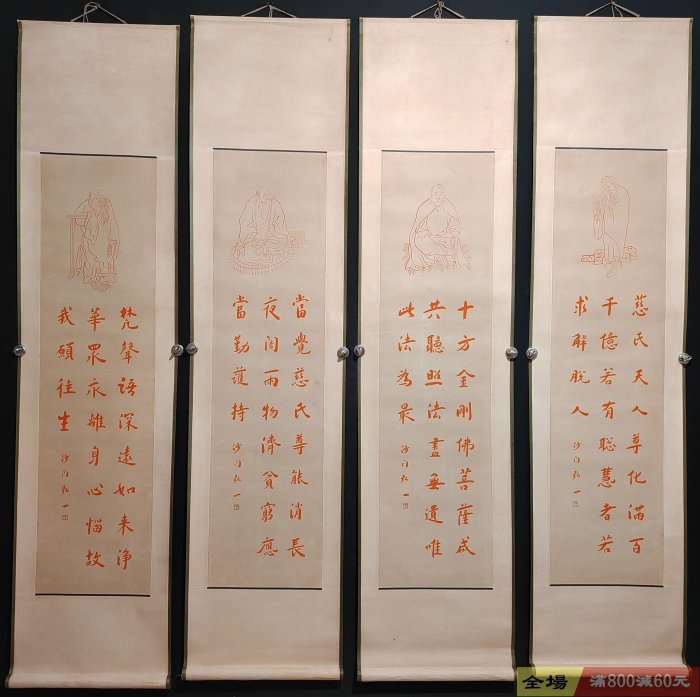 慈氏天人尊化滿百
千億若有聰慧者若
求解脫人
沙門弘一
十方金剛佛菩薩咸
共聽照法盡無遺唯
此法為最
沙門弘一
當覺慈氏尊能消長
夜闇雨物濟貧窮應
當勤護持
沙門弘一
梵聲語深遠如来淨
華眾永離身心惱故
我願往生
沙門弘一
全場 滿800減60元